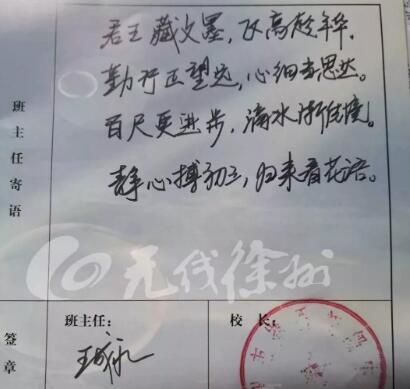 君王藏文墨，飞高趁年华。
勤行正望远，心细当思达。
百尺更进步，满水渐佳境。
静心搏初三，归来看花语。
班主任寄语
无线徐州
签章
班主任：
校长：
王成永